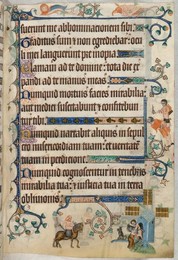 fuerunt me abhominacionem sibi
Traditus sum et non egrediebar: ocu
li mei languerunt pre inopia
Clamaui ad te domine: tota die ex
pandi ad te manus meas
Nunquid mortuis facies mirabilia:
aut medici suscitabunt et confitebun
tur tibi
Nunquid narrabit aliquis in sepul
misericordiam tuam: et ueritatem
tuam in perdicione
Nunquid cognoscentur in tenebris
mirabilia tua: et iusticia tua in terra
obliuionis